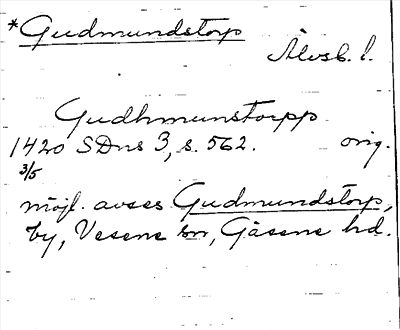 *Gudmundstorp
Älvsb. l.
Gudhmunstorpp
1420 SDns 3, s. 562. orig.
3/5
möjl. avses Gudmundstorp,
by, Vesene sn, Gäsene hd.